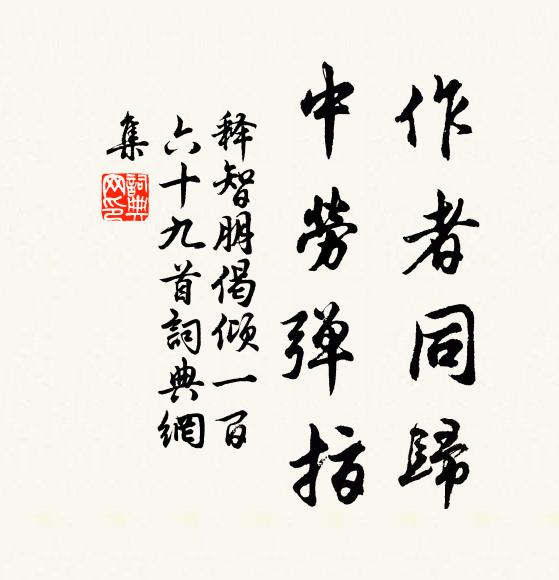 作者同歸
中勞弹指
释智朋偈倾一百
六十九首詞典網
集
詞典网印